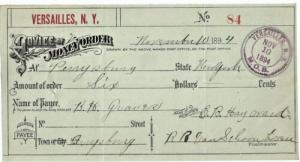 VERSAILLES, N. Y. No. 84
ADVICE OF MONEY ORDER November 10 1894
DRAWN BY THE ABOVE NAMED POST OFFICE, ON THE POST OFFICE
VERSAILLES, N.Y. NOV 10 1894 M.O.B.
At Perrysburg State New York
Amount of order Six Dollars Cents
Name of Payee, B. H. Graves E. B. Hayward
PAYEE No. Street
Town or City
Postmaster.